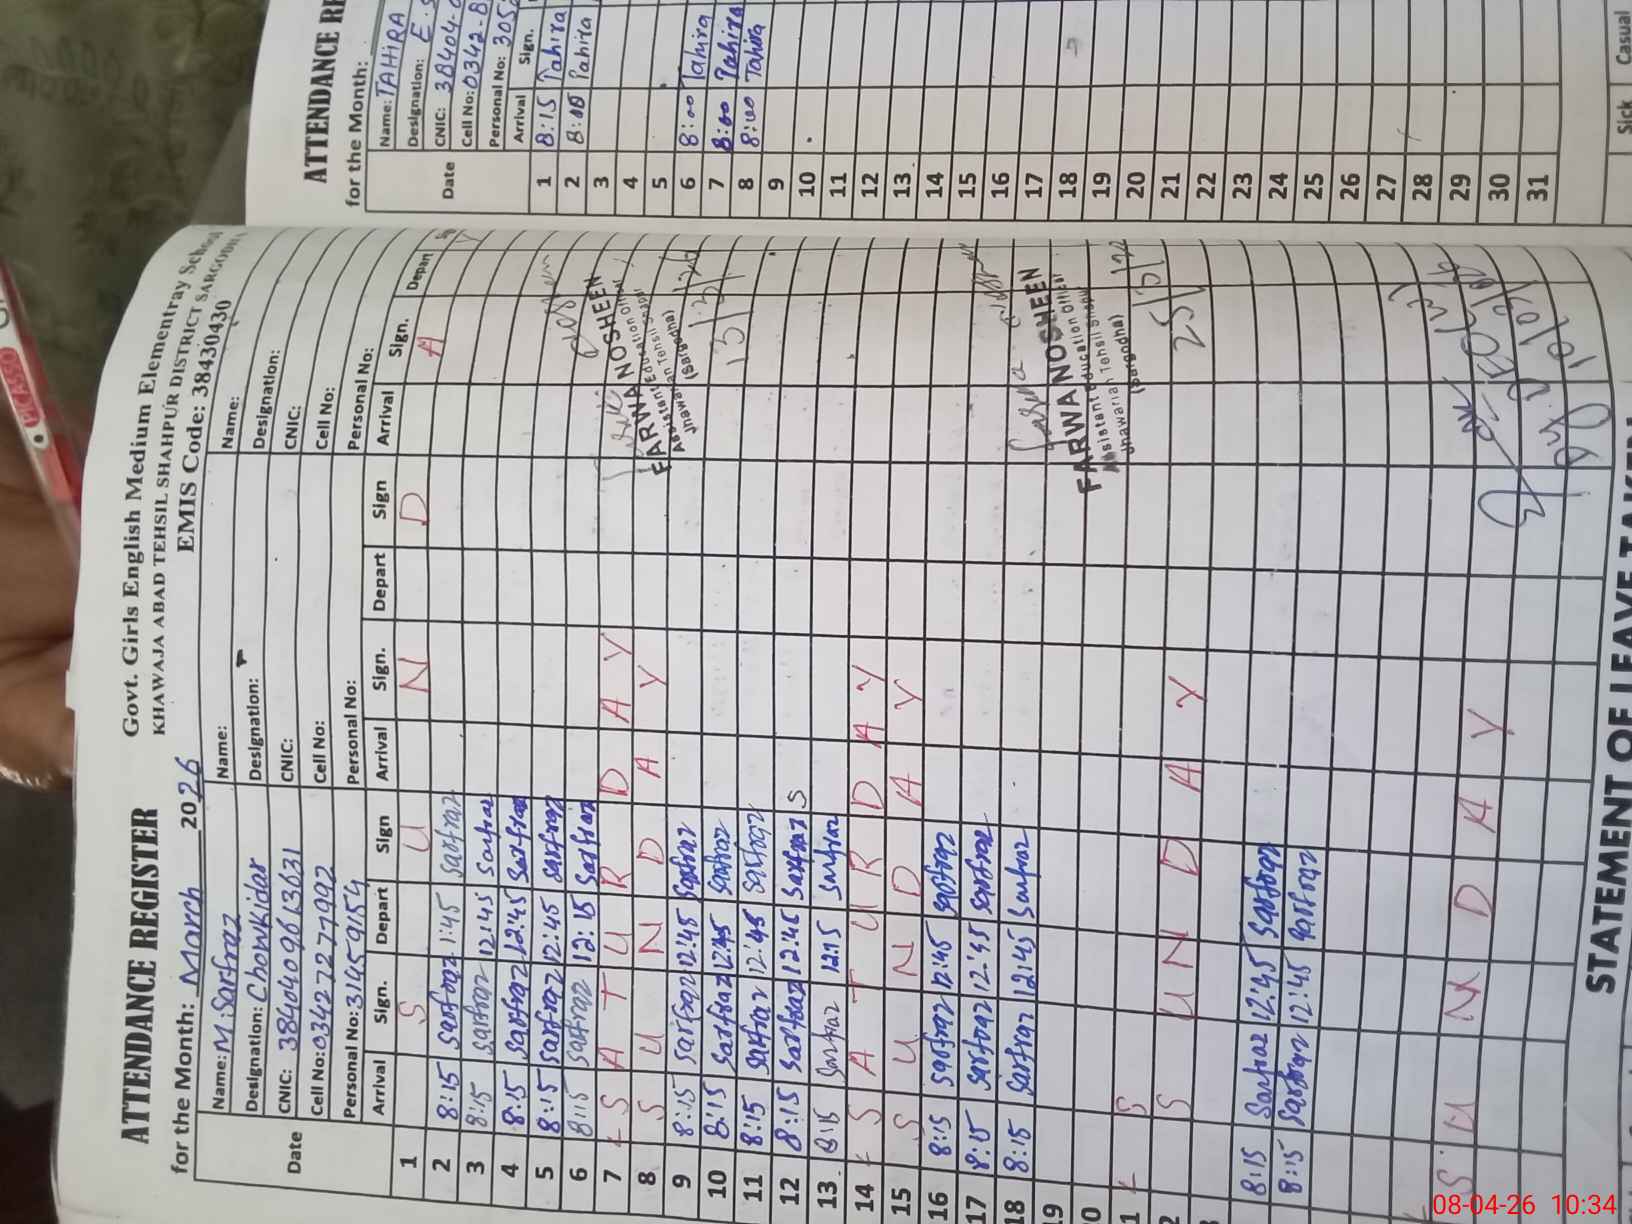 ATTENDANCE REGISTER
for the Month: March 2026
Govt. Girls English Medium Elementray School
KHAWAJA ABAD TEHSIL SHAHPUR DISTRICT SARGODHA
EMIS Code: 38430430
Name: M. Sarfraz
Designation: Chowkidar
CNIC: 3840409613631
Cell No: 03427277992
Personal No: 31459154
Name:
Designation:
CNIC:
Cell No:
Personal No:
Name:
Designation:
CNIC:
Cell No:
Personal No:
Date Arrival Sign. Depart Sign Arrival Sign. Depart Sign Arrival Sign. Depart
1 S U N D A Y
2 8:15 Sarfraz 1:45 Sarfraz
3 8:15 Sarfraz 12:45 Sarfraz
4 8:15 Sarfraz 12:45 Sarfraz
5 8:15 Sarfraz 12:45 Sarfraz
6 8:15 Sarfraz 12:15 Sarfraz
7 S A T U R D A Y
8 S U N D A Y
9 8:15 Sarfraz 12:45 Sarfraz
10 8:15 Sarfraz 12:45 Sarfraz
11 8:15 Sarfraz 12:45 Sarfraz
12 8:15 Sarfraz 12:45 Sarfraz S
13 8:15 Sarfraz 12:15 Sarfraz
14 S A T U R D A Y
15 S U N D A Y
16 8:15 Sarfraz 12:45 Sarfraz
17 8:15 Sarfraz 12:45 Sarfraz
18 8:15 Sarfraz 12:45 Sarfraz
19
20
21 S
22 S U N D A Y
8:15 Sarfraz 12:45 Sarfraz
8:15 Sarfraz 12:45 Sarfraz
S U N D A Y
FARWA NOSHEEN
Assistant Education Officer
Jhawarian Tehsil Shahpur
(Sargodha)
FARWA NOSHEEN
Assistant Education Officer
Jhawarian Tehsil Shahpur
(Sargodha)
STATEMENT OF LEAVE TAKEN
ATTENDANCE RE
for the Month:
Name: TAHIRA
Designation: E.S
CNIC: 38404-
Cell No: 0342-8
Personal No: 305
Date Arrival Sign.
1 8:15 Tahira
2 8:00 Tahira
3
4
5
6 8:00 Tahira
7 8:00 Tahira
8 8:00 Tahira
9
10
11
12
13
14
15
16
17
18
19
20
21
22
23
24
25
26
27
28
29
30
31
Sick Casual
PICASSO
08-04-26 10:34